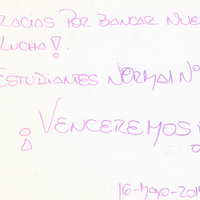 RACIAS POR BANCAR NUE
LUCHA!
ESTUDIANTES NORMAL Nº
¡VENCEREMOS
16-MAYO-201